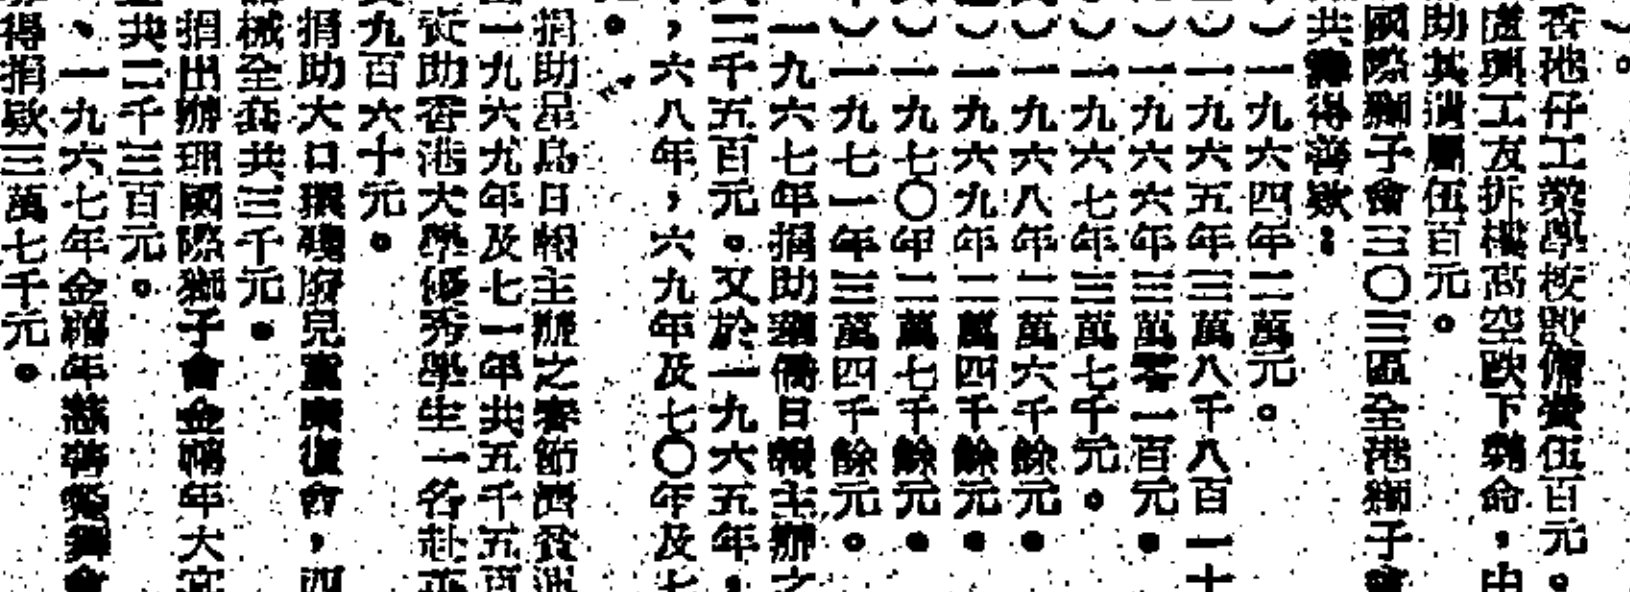 ）。
香池仔工業學校設備費伍百元。
處與工友拆樓高空跌下斃命，由
助其遺屬伍百元。
國際獅子會三〇三區全港獅子會
共籌得善欵：
）一九六四年二萬元。
）一九六五年三萬八千八百一十
）一九六六年三萬零一百元。
）一九六七年三萬七千元。
）一九六八年二萬六千餘元。
）一九六九年二萬四千餘元。
）一九七〇年二萬七千餘元。
）一九七一年三萬四千餘元。
一九六七年捐助華僑日報主辦之
二千五百元。又於一九六五年，
，六八年，六九年及七〇年及七
。
捐助星島日報主辦之春節濟貧運
一九六九年及七一年共五千五百
資助香港大學優秀學生一名赴英
九百六十元。
捐助大口環殘廢兒童康復會，四
械全套共三千元。
捐出辦理國際獅子會金禧年大宗
共二千三百元。
、一九六七年金禧年慈善餐舞會
得捐欵三萬七千元。